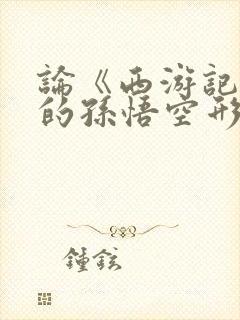 論《西游記
的孫悟空形
鍾鉉